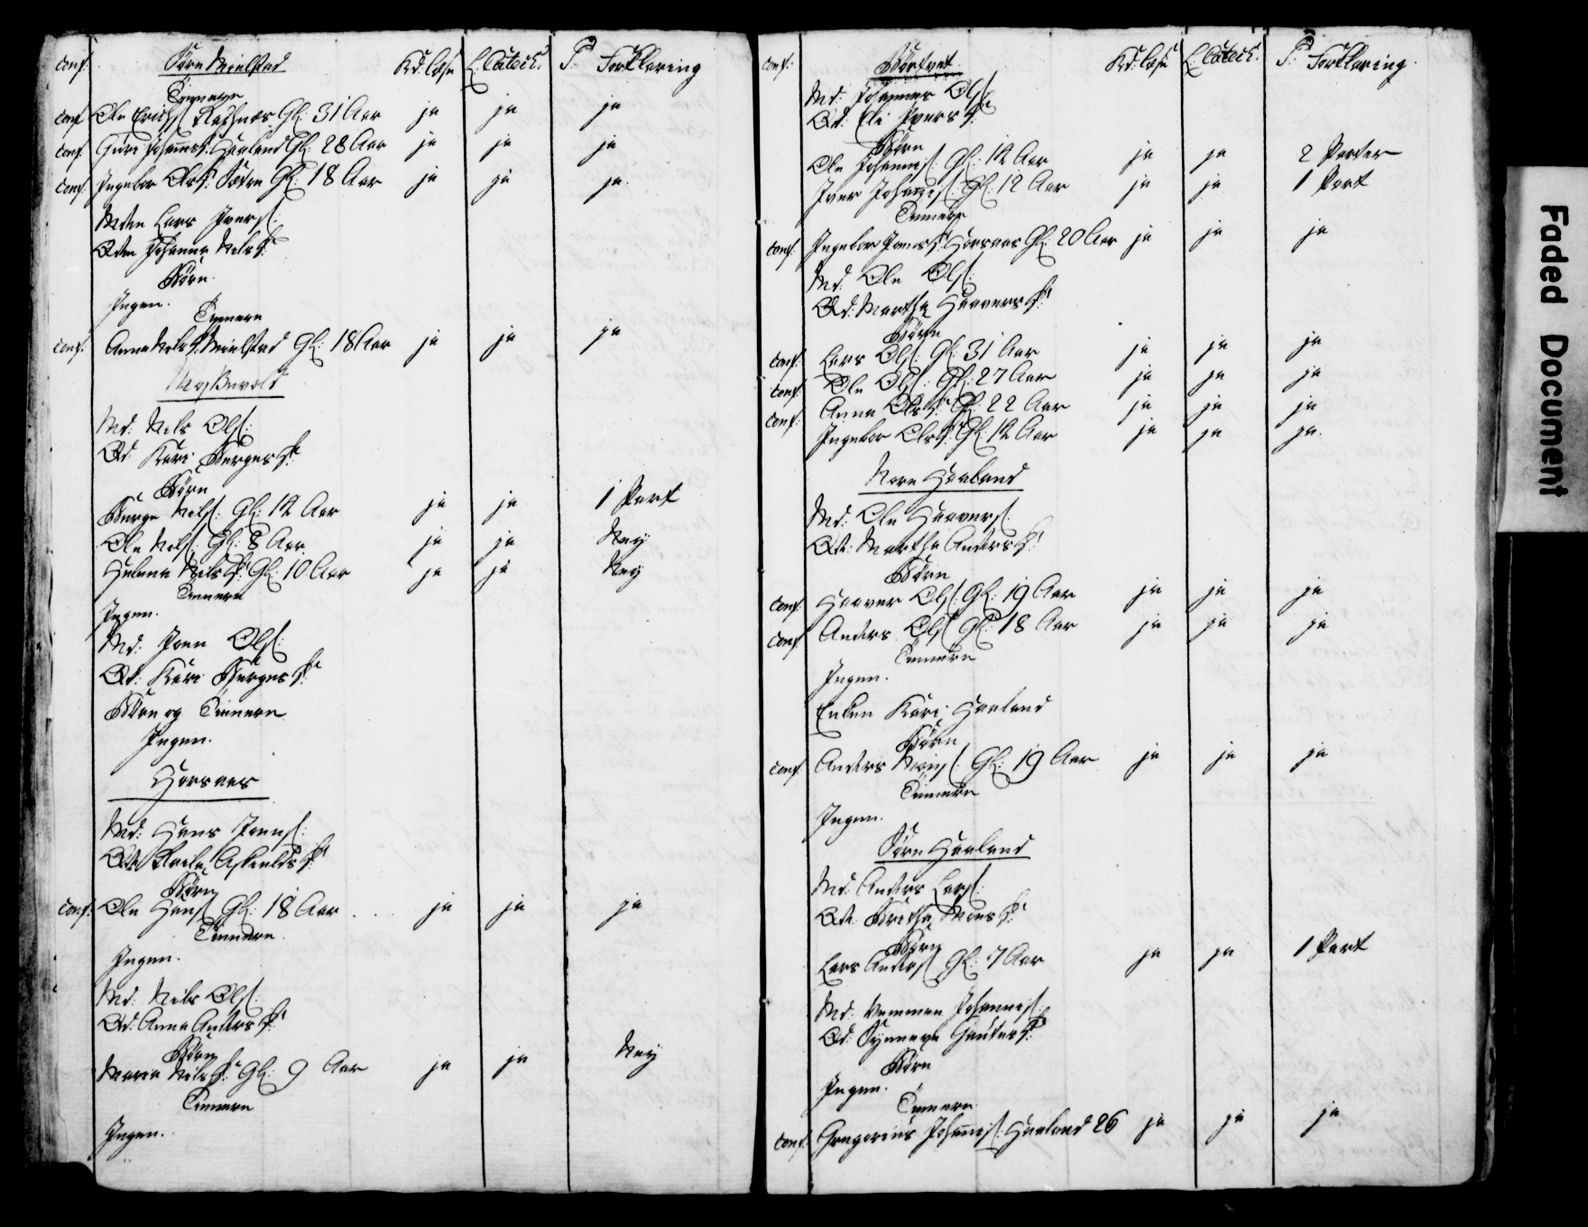 Conf. Søre Mielstad Kd. læse L. Catech. P. Forklaring
Tienere
Conf. Ole Erichs. Gl. 31 Aar ja ja ja
Conf. Guri Johannsd. Haaland Gl. 28 Aar ja ja ja
Conf. Ingebor Olsd. Gl. 18 Aar ja ja ja
Mden Lars Ivers.
Qden Johanna Nilsd.
Børn
Ingen.
Tienere
Conf. Anna Nilsd. Mielstad Gl. 18 Aar ja ja ja
Md. Nils Ols.
Qd Kari Børgesd.
Børn
Børge Nils. Gl. 12 Aar ja ja 1 Part
Ole Nils. Gl. 8 Aar ja ja Ney
Helena Nilsd. Gl. 10 Aar ja ja Ney
Tienere
Ingen.
Md: Joen Ols.
Qd: Kari Børgesd.
Børn og Tienere
Ingen.
Horsnes
Md: Hans Joens.
Qd: Askieldsd.
Børn
Conf. Ole Hans. Gl. 18 Aar ja ja ja
Tienere
Ingen.
Md: Nils Ols.
Qd: Anna Andersd.
Børn
Maria Nilsd. Gl. 9 Aar ja ja Ney
Tienere
Ingen.
Conf. Kd. læse L. Catech. P. Forklaring
Md: Johannes Ols.
Qd: Eli Iversd.
Børn
Ole Johannes. Gl. 14 Aar ja ja 2 Parter
Iver Johannes. Gl. 12 Aar ja ja 1 Part
Tienere
Conf. Ingebor Horsnes Gl. 20 Aar ja ja ja
Md: Ole Ols.
Qd: Martha Haaversd.
Børn
Conf. Lars Ols. Gl. 31 Aar ja ja ja
Conf. Ole Ols. Gl. 27 Aar ja ja ja
Conf. Anna Olsd. Gl. 22 Aar ja ja ja
Ingebor Olsd. Gl. 14 Aar ja ja ja
Nore Haaland
Md: Ole Haavers.
Qd: Martha Andersd.
Børn
Conf. Haaver Ols. Gl. 19 Aar ja ja ja
Conf. Anders Ols. Gl. 18 Aar ja ja ja
Tienere
Ingen.
Enken Kari Haaland
Børn
Conf. Anders Gl. 19 Aar ja ja ja
Tienere
Ingen.
Søre Haaland
Md: Anders Lars.
Qd: Britha Monsd.
Børn
Lars Anders. Gl. 7 Aar ja ja 1 Part
Md: Johannes.
Qd: Synneve Gautesd.
Børn
Ingen.
Tienere
Conf. Gregorius Johannes. Haaland 26 ja ja ja
Faded Document